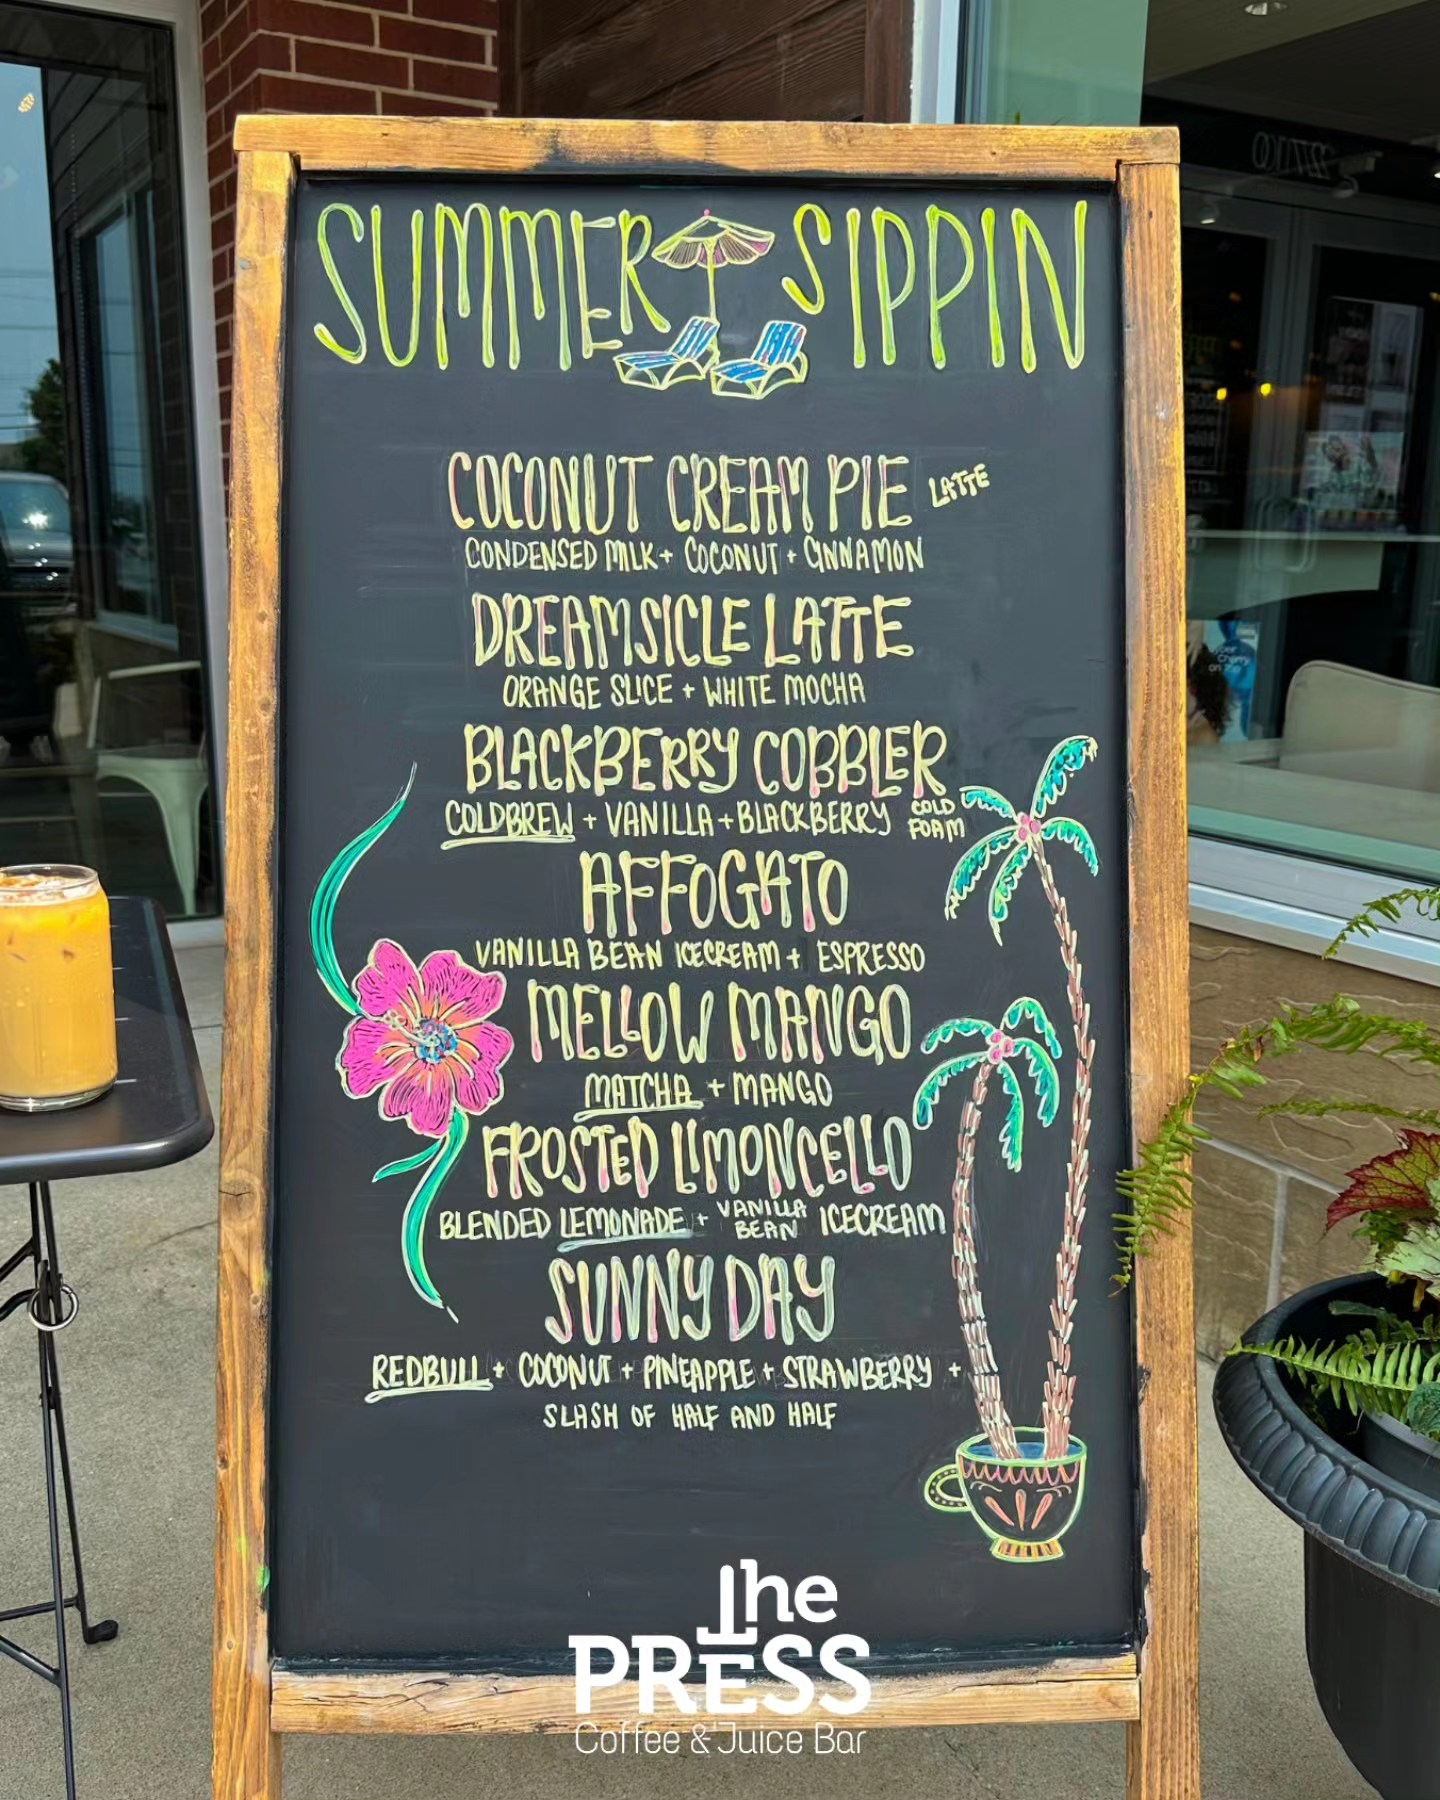 SUMMER SIPPIN
COCONUT CREAM PIE LATTE
CONDENSED MILK + COCONUT + CINNAMON
DREAMSICLE LATTE
ORANGE SLICE + WHITE MOCHA
BLACKBERRY COBBLER
COLDBREW + VANILLA + BLACKBERRY COLD FOAM
AFFOGATO
VANILLA BEAN ICECREAM + ESPRESSO
MELLOW MANGO
MATCHA + MANGO
FROSTED LIMONCELLO
BLENDED LEMONADE + VANILLA BEAN ICECREAM
SUNNY DAY
REDBULL + COCONUT + PINEAPPLE + STRAWBERRY +
SLASH OF HALF AND HALF
The
PRESS
Coffee & Juice Bar